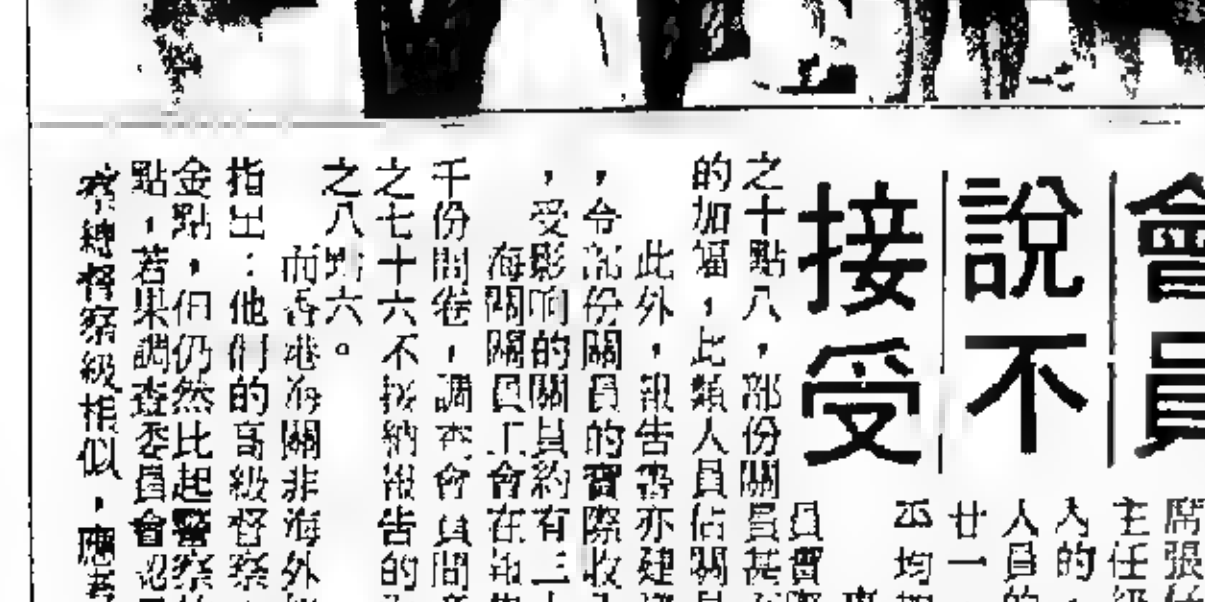 會員
說不
接受
席張
主任級
入的，
人員的
廿一
平均加
員實際
之十點八，部份關員甚至
的加幅，此類人員佔關員
此外，報告書亦建議
，令部份關員的實際收入
，受影响的關員約有三十
海關關員工會在報告
千份問卷，調查會員間意
之七十六不接納報告的
之八點六。
而香港海關非海外
指出：他們的高級督察
金點，但仍然比起警察
點，若果調查委員會認為
察總督察級相似，應者